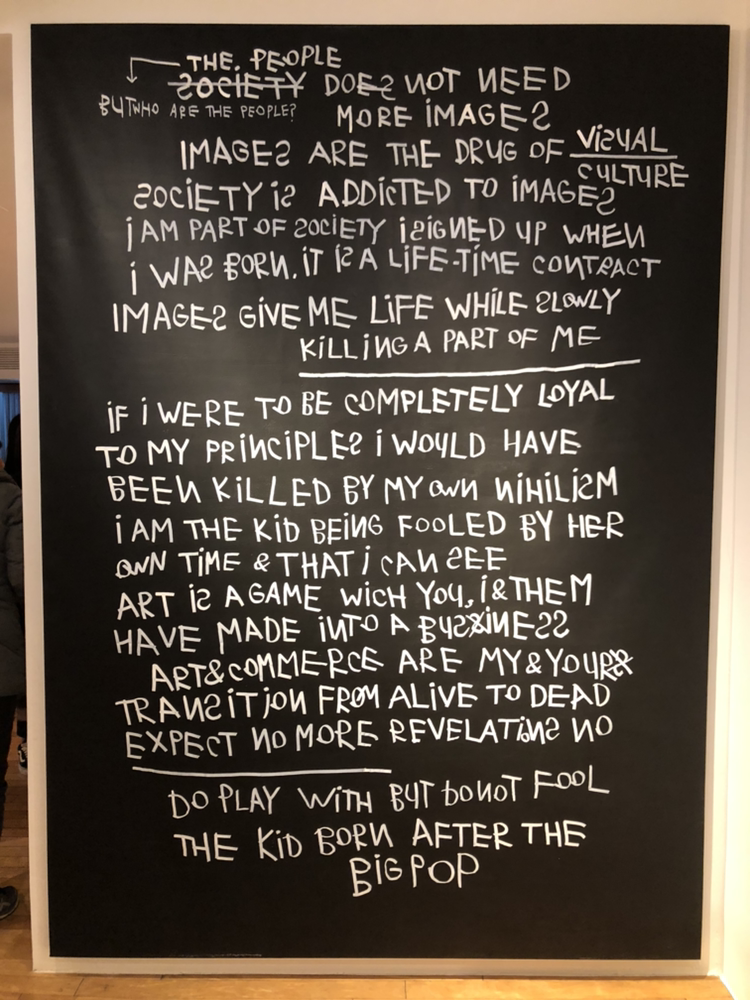 THE. PEOPLE
SOCIETY DOES NOT NEED
BUT WHO ARE THE PEOPLE?
MORE IMAGES
IMAGES ARE THE DRUG OF VISUAL
CULTURE
SOCIETY IS ADDICTED TO IMAGES
I AM PART OF SOCIETY I SIGNED UP WHEN
I WAS BORN. IT IS A LIFE-TIME CONTRACT
IMAGES GIVE ME LIFE WHILE SLOWLY
KILLING A PART OF ME
IF I WERE TO BE COMPLETELY LOYAL
TO MY PRINCIPLES I WOULD HAVE
BEEN KILLED BY MY OWN NIHILISM
I AM THE KID BEING FOOLED BY HER
OWN TIME & THAT I CAN SEE
ART IS A GAME WICH YOU, I & THEM
HAVE MADE INTO A BUSSINESS
ART & COMMERCE ARE MY & YOURS
TRANSITION FROM ALIVE TO DEAD
EXPECT NO MORE REVELATIONS NO
DO PLAY WITH BUT DO NOT FOOL
THE KID BORN AFTER THE
BIG POP